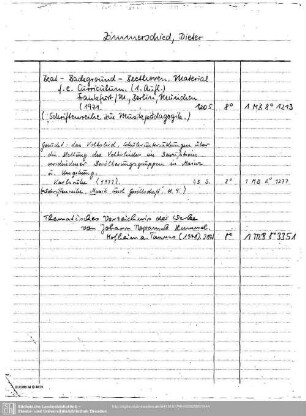 Zimmerschied, Dieter
Beat - Background - Beethoven. Material
f. e. Curriculum. (1. Aufl.)
Frankfurt/M., Berlin, München
(1971). 120 S. 8° 1 MB 8° 1213
(Schriftenreihe zur Musikpädagogik.)
Gerücht: das Volkslied, Schüleruntersuchungen über
die Stellung des Volksliedes im Bewußtsein
verschiedener Bevölkerungsgruppen in Mainz
u. Umgebung.
Karlsruhe (1977). S. 8° 1 MB 8° 1277
(Schriftenreihe Musik und Gesellschaft. H. 4.)
Thematisches Verzeichnis der Werke
von Johann Nepomuk Hummel.
Hofheim a Taunus (1971). 8° 1 MB 8° 3351